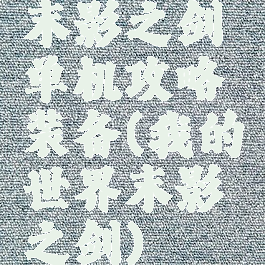 木影之剑
单机攻略
装备(我的
世界木影
之剑)